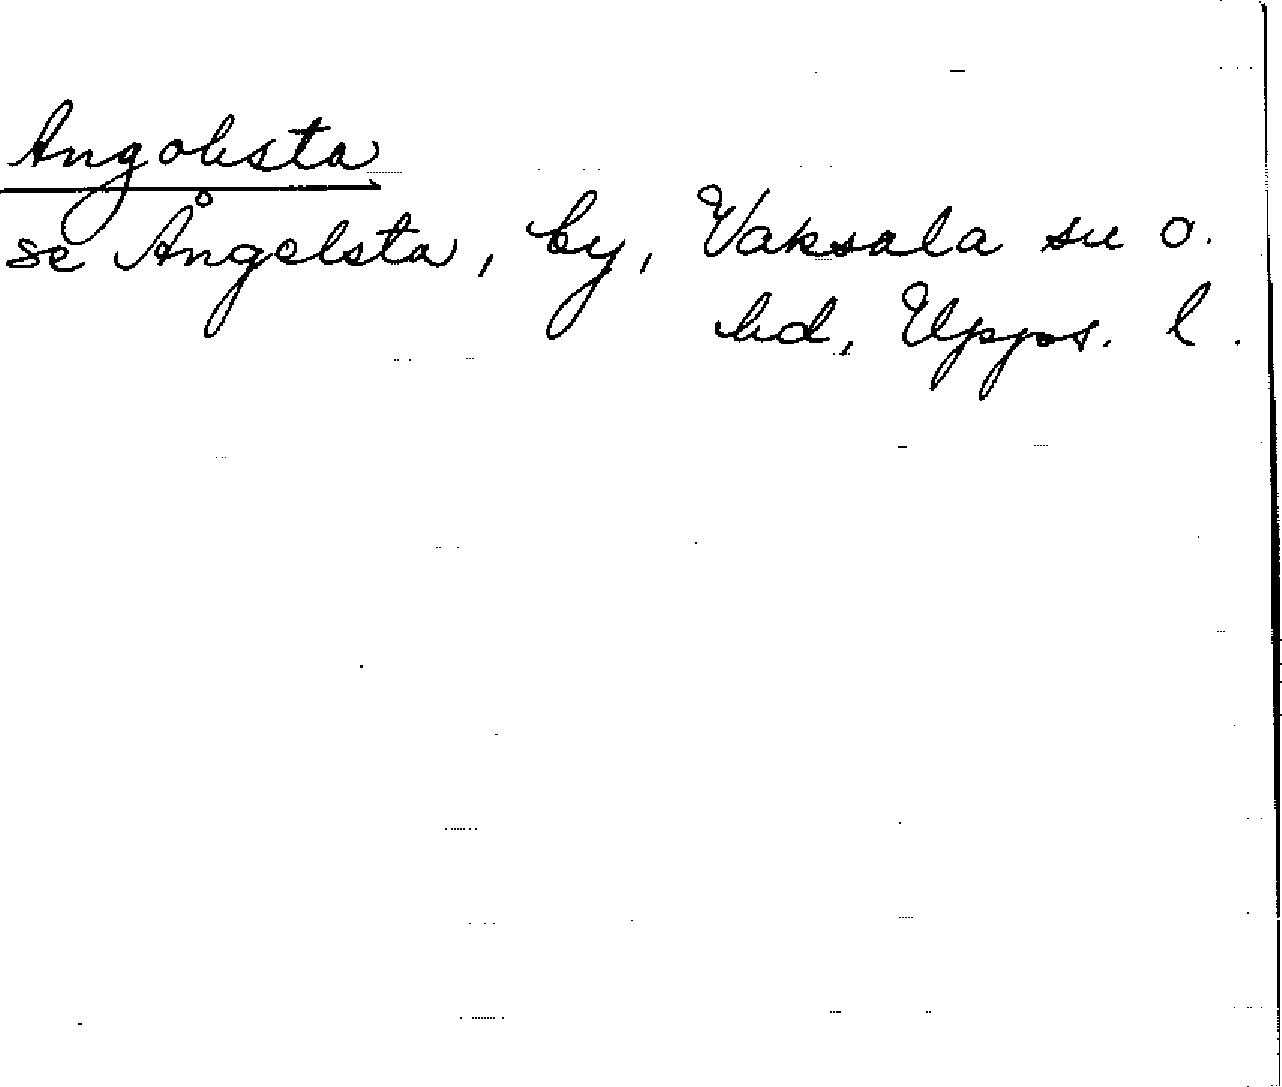 Angolsta
se Ångelsta, by, Vaksala sn o.
hd, Upps. l.